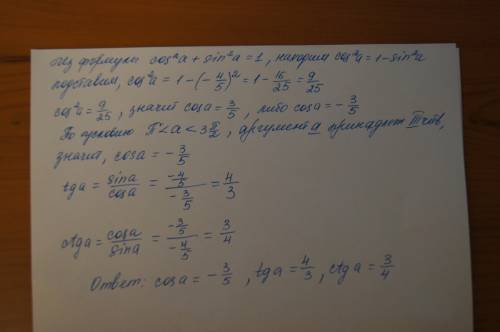 Из формулы cos²a + sin²a = 1, находим cos²a = 1 - sin²a
подставим, cos²a = 1 - (-4/5)² = 1 - 16/25 = 9/25
cos²a = 9/25, значит cosa = 3/5, либо cosa = -3/5
По условию π < a < 3π/2, аргумент a принадлеж III четв,
значит, cosa = -3/5
tga = sina/cosa = (-4/5)/(-3/5) = 4/3
ctga = cosa/sina = (-3/5)/(-4/5) = 3/4
Ответ: cosa = -3/5, tga = 4/3, ctga = 3/4